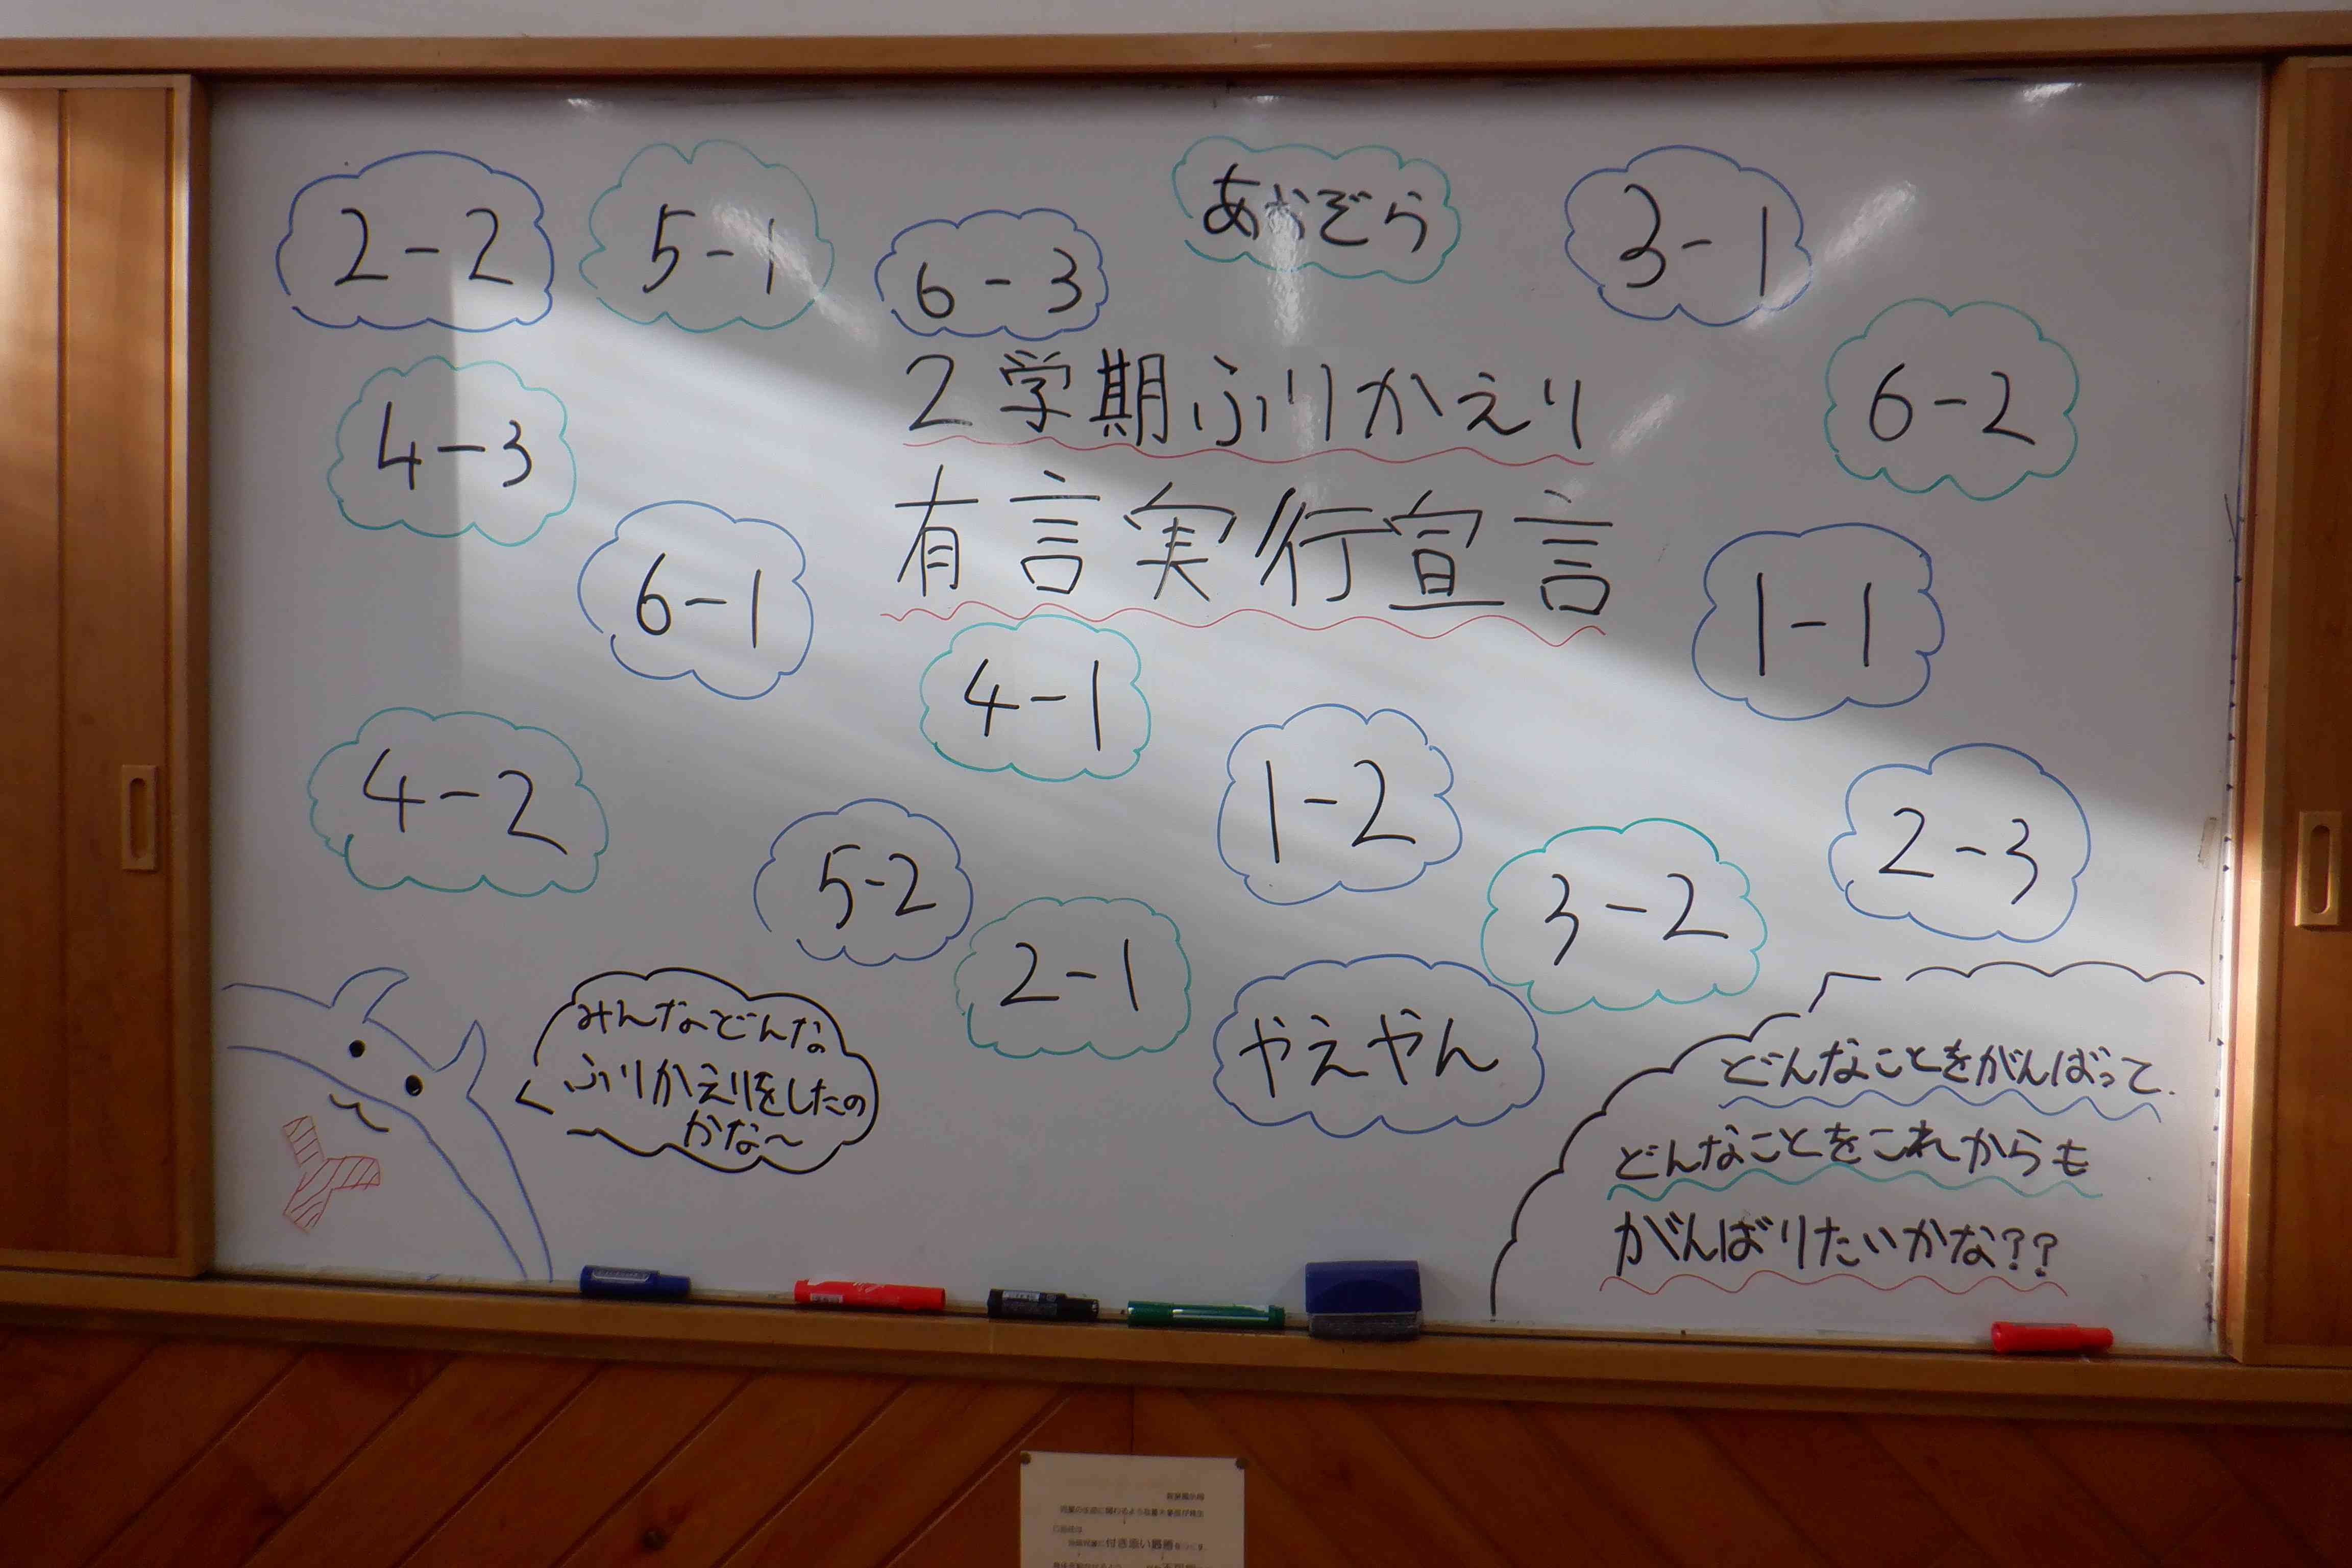 2-2
5-1
6-3
あおぞら
3-1
2学期ふりかえり
6-2
4-3
有言実行宣言
6-1
1-1
4-1
4-2
1-2
5-2
3-2
2-3
2-1
やえやん
みんなどんな
ふりかえりをしたの
かな〜
どんなことをがんばって
どんなことをこれからも
がんばりたいかな??
付き添い